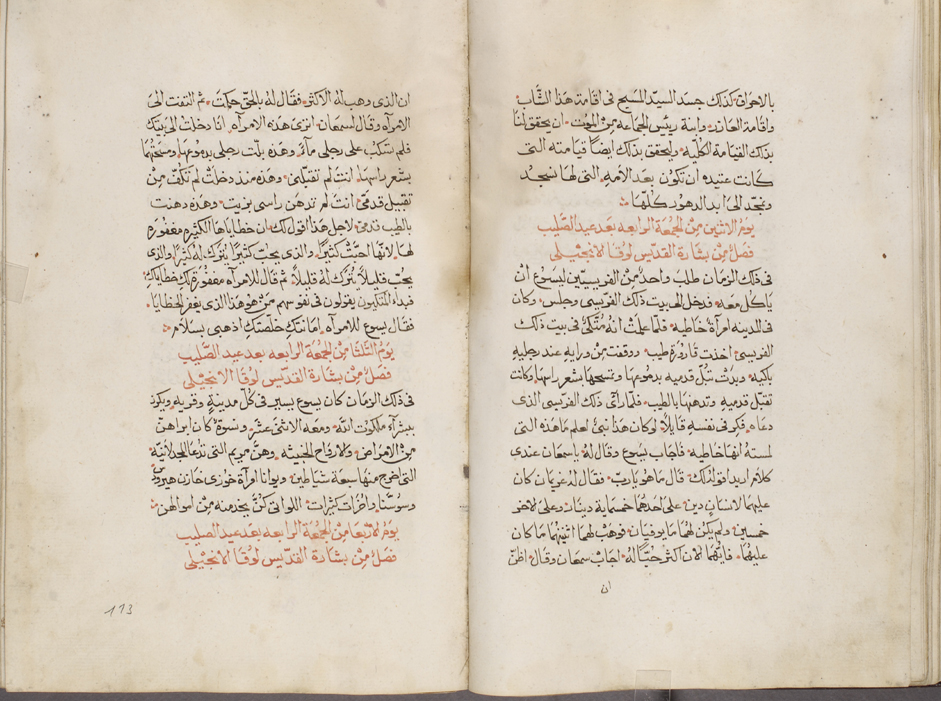 بالاحراق كذلك جسد السيد المسيح فى اقامة هذا الشاب
واقامة العازر وابنة رييس الجماعه من الموت ان يحقق لنا
بذلك القيامة الكليه وليحقق بذلك ايضًا قيامته التى
كانت عتيده ان تكون بعد الامه التى لها نسجد
ونمجد الى ابد الدهور كلها
يوم الاثنين من الجمعة الرابعه بعد عيد الصليب
فصل من بشارة القديس لوقا الانجيلى
فى ذلك الزمان طلب واحد من الفريسيين ليسوع ان
ياكل معه فدخل الى بيت ذلك الفريسى وجلس وكان
فى المدينه امرأة خاطيه فلما علمت انه متكئ فى بيت ذلك
الفريسى اخذت قارورة طيب ووقفت من ورايه عند رجليه
باكيه وبدت تبل قدميه بدموعها وتمسحها بشعر راسها وكانت
تقبل قدميه وتدهنها بالطيب فلما رأى ذلك الفريسى الذى
دعاه فكر فى نفسه قايلًا لو كان هذا نبى لعلم ما هذه التى
لمسته انها خاطيه فاجاب يسوع وقال له يا سمعان عندى
كلام اريد اقوله لك قال ما هو يا رب فقال له غريمان كان
عليهما لانسان دين على احدهما خمسماية دينار وعلى الاخر
خمسين ولم يكن لهما ما يوفيان فوهب لهما اثنينهما ما كان
عليهما فايهما الان اكثر حبًا له اجاب سمعان وقال اظن
ان
ان الذى وهب له الاكثر فقال له بالحق حكمت ثم التفت الى
الامرأه وقال لسمعان اترى هذه الامرأه انا دخلت الى بيتك
فلم تسكب على رجلى مآء وهذه بلت رجلى بدموعها ومسحتهما
بشعر راسها انت لم تقبلنى وهذه منذ دخلت لم تكف من
تقبيل قدمى انت لم تدهن راسى بزيت وهذه دهنت
بالطيب قدمى لاجل هذا اقول لك ان خطاياها الكثيره مغفوره
لها لانها احبت كثيرًا والذى يحب كثيرًا يترك له كثيرًا والذى
يحب قليلًا يترك له قليلًا ثم قال للامرأه مغفورة لك خطاياكِ
فبدء المتكيون يقولون فى نفوسهم من هو هذا الذى يغفر الخطايا
فقال يسوع للامرأه امانتك خلصتكِ اذهبى بسلام
يوم الثلثا من الجمعة الرابعه بعد عيد الصليب
فصل من بشارة القديس لوقا الانجيلى
فى ذلك الزمان كان يسوع يسير فى كل مدينة وقريه ويكرز
ويبشر بملكوت الله ومعه الاثنى عشر ونسوة كان ابراهن
من الامراض والارواح الخبيثه وهن مريم التى تدعا المجدلانية
التى اخرج منها سبعة شياطين ويوانا امرأة خوزى خازن هيرودس
وسوسنا واخرات كثيرات اللواتى كن يخدمنه من اموالهن
يوم الاربعا من الجمعة الرابعه بعد عيد الصليب
فصل من بشارة القديس لوقا الانجيلى
113